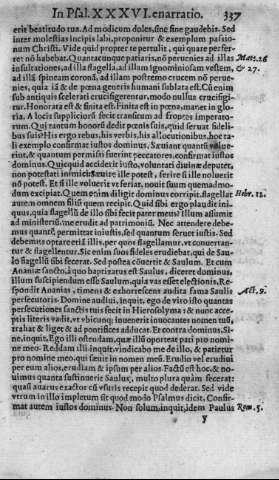 In Psal. XXXVI. enarratio. 337
erit beatitudo tua. Ad modicum doles, sine fine gaudebis. Sed
inter molestias incipis labi, proponitur & exemplum passio-
num Christi. Vide quid propter te pertulit, qui quare perfer-
ret nõ habebat. Quantacunque patiaris, nõ pervenies ad illas
insultationes, ad illa flagella, ad illam ignominiosam vestem,
ad illã spineam coronã, ad illam postremo crucem nõ perve-
nies, quia iã & de pœna generis humani sublata est. Cũ enim
sub antiquis scelerati crucifigerentur, modo nullus crucifigi-
tur. Honorata est & finita est. Finita est in pœna, manet in glo-
ria. A locis suppliciorũ fecit transitum ad frontes imperato-
rum. Qui tantum honorẽ dedit pœnis suis, quid servat fideli-
bus suis? His ergo rebus, his verbis, his allocutionibus, hoc ta-
li exemplo confirmat iustos dominus. Sæviant quantũ volue-
rint, & quantum permissi fuerint peccatores, confirmat iustos
dominus. Quicquid acciderit iusto, voluntati divinæ deputet,
non potestati inimici. Sævire ille potest, ferire si ille noluerit
nõ potest. Et si ille voluerit ut feriat, novit suum quemadmo-
dum excipiat. Quem enim diligit dominus corripit, flagellat
autem omnem filiũ quem recipit. Quid sibi ergo plaudit ini-
quus, quia flagellũ de illo sibi fecit pater meus? Illum assumit
ad ministeriũ, me erudit ad patrimoniũ. Nec attendere debe-
mus quantũ permittat iniustis, sed quantum servet iustis. Sed
debemus optare et illi, per quos flagellamur, ut convertan-
tur & flagellentur. Sic enim suos fideles erudiebat, qui de Sau-
lo flagellũ sibi fecerat. Sed postea cõvertit & Saulum. Et cum
Ananiæ sancto, à quo baptizatus est Saulus, diceret dominus.
Illum suscipiendum esse Saulum, quia vas esset electionis. Re-
spondit Ananias, timens & exhorrescens audita fama Saulis
persecutoris. Domine audivi, inquit, ego de viro isto quantas
persecutiones sanctis tuis fecit in Hierosolyma: & nunc acce-
ptis literis vadit, ut ubicunq; invenerit invocantes nomen tuũ,
trahat & liget & ad pontifices adducat. Et contra dominus. Si-
ne, inquit. Ego illi ostendam, quæ illũ oporteat pati pro nomi-
ne meo. Reddam illi inquit: vindicabo me de illo, & patietur
pro nomine meo, qui sævit in nomen meũ. Erudio vel erudivi
per eum alios, erudiam & ipsum per alios. Factũ est hoc, & no-
vimus quanta sustinuerit Saulus, multo plura quàm fecerat:
quasi avarus exactor cũ usuris recepit quod dederat. Sed vide
verum in illo impletum sit quod modo Psalmus dicit. Confir-
mat autem iustos dominus. Non solum, inquit, idem Paulus
Y
Mat. 26
& 27.
Hebr. 12.
Act. 9.
Rom. 5.